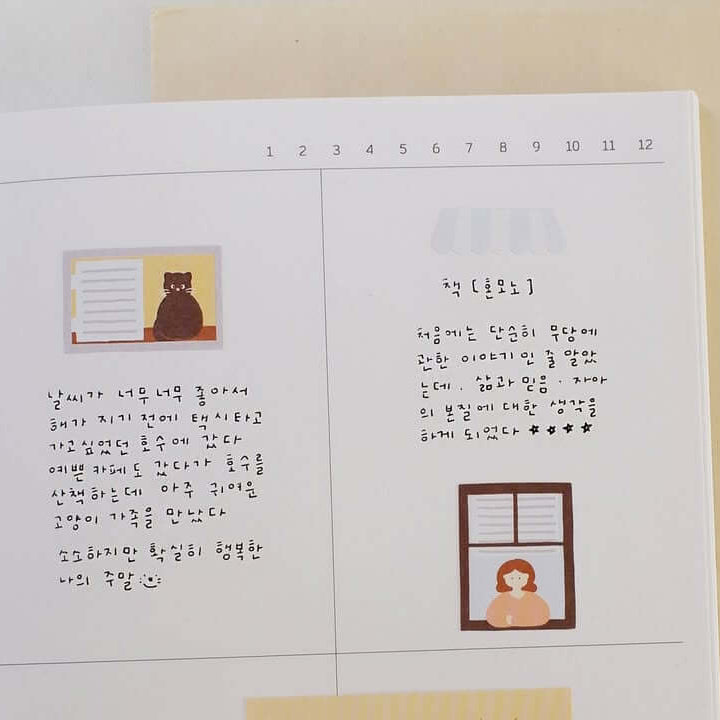 1 2 3 4 5 6 7 8 9 10 11 12
날씨가 너무너무 좋아서
해가 지기 전에 택시타고
가고싶었던 호수에 갔다
예쁜 카페도 갔다가 호수를
산책하는데 아주 귀여운
고양이 가족을 만났다
소소하지만 확실히 행복한
나의 주말
책 [혼모노]
처음에는 단순히 무당에
관한 이야기인 줄 알았
는데. 삶과 믿음·자아
의 본질에 대한 생각을
하게 되었다 ★★★★